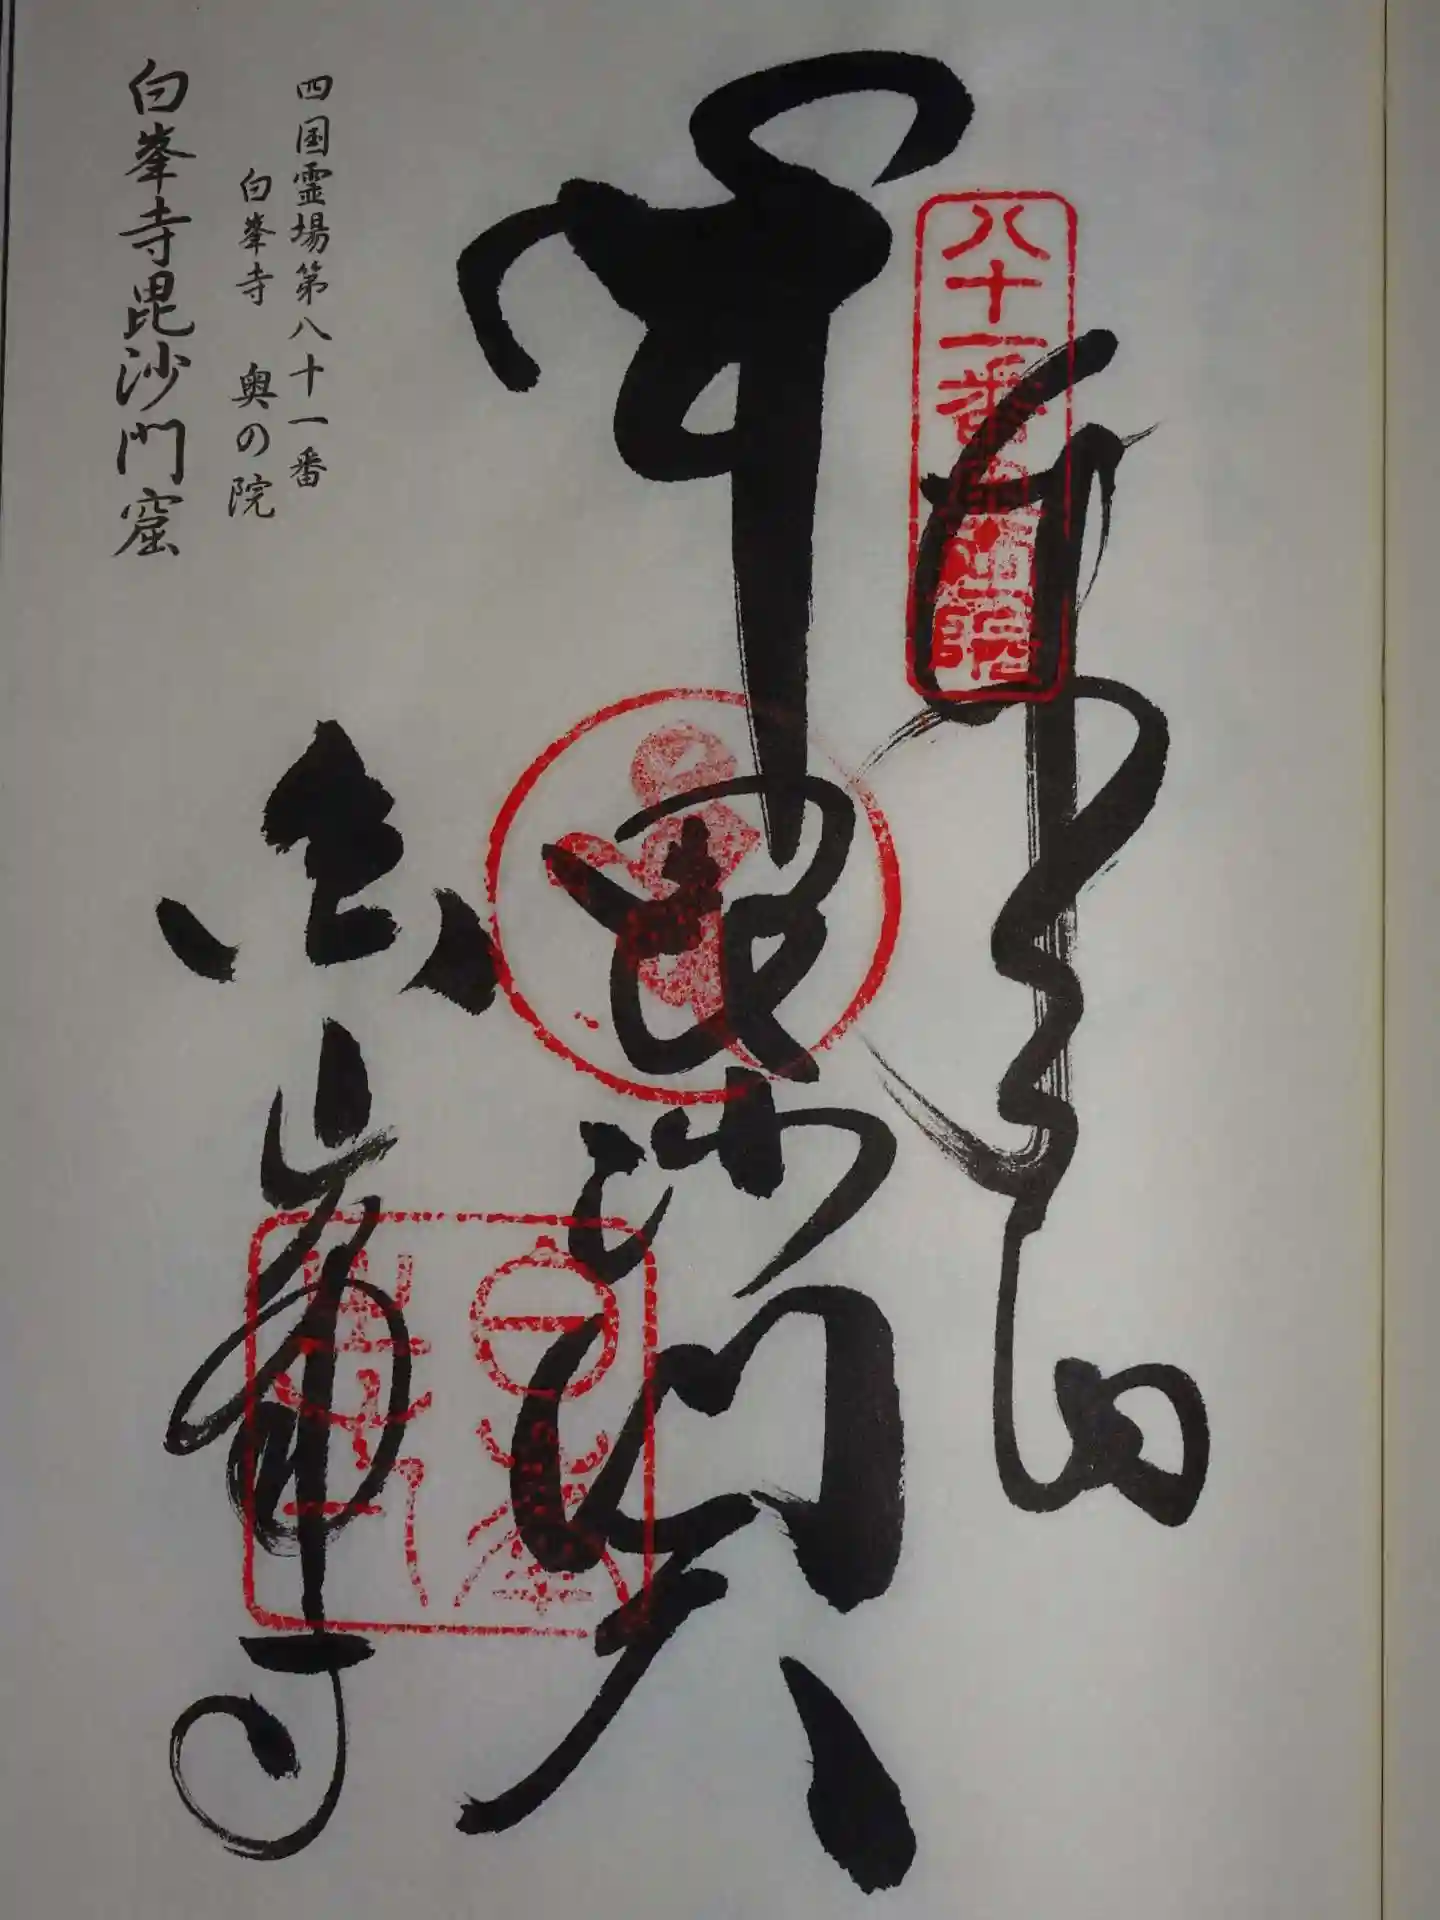 奉拝
毘沙門天
白峯寺
八十一番奥之院
四国霊場第八十一番
白峯寺 奥の院
白峯寺毘沙門窟